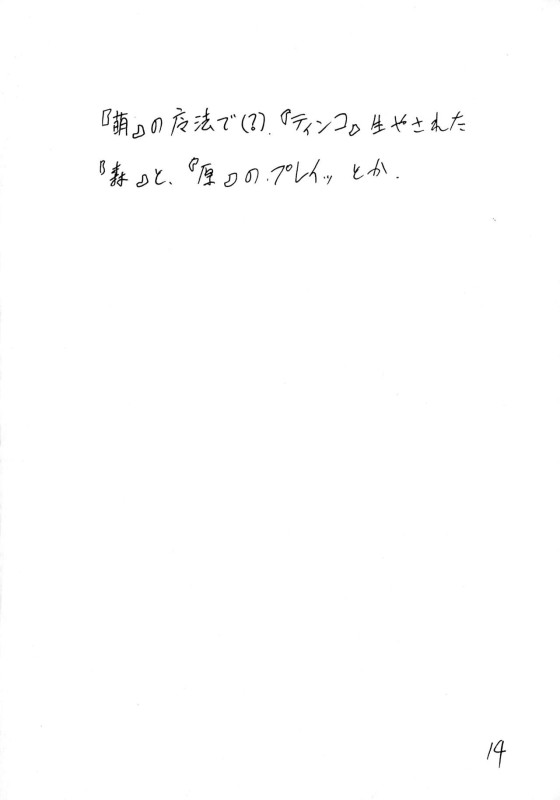 『萌』の魔法で(?)、『ティンコ』生やされた
『森』と、『原』の、プレイッとか.
14